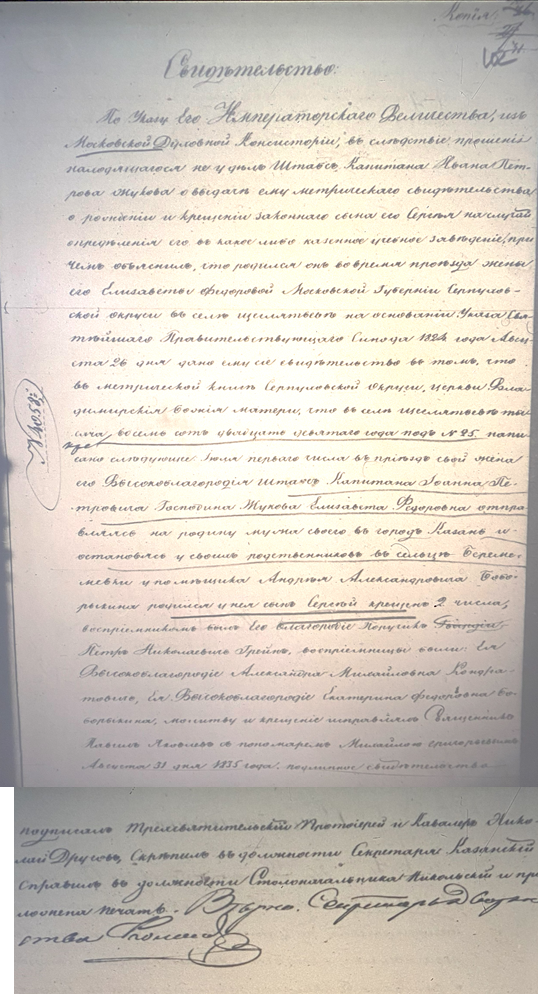 Копія.
Свидѣтельство.
По Указу Его Императорскаго Величества, изъ
Московской Духовной Консисторіи, въ слѣдствіе прошенія
находящагося не у дѣлъ Штабсъ Капитана Ивана Пет-
рова Жукова о выдачѣ ему метрическаго свидѣтельства
о рожденіи и крещеніи законнаго сына его Сергѣя на случай
опредѣленія его въ какое либо казенное учебное заведеніе, при
чемъ объяснилъ, что родился онъ во время проѣзда жены
его Елизаветы Федоровой Московской Губерніи Серпухов-
ской округи въ селѣ на основаніи Указа Свя-
тѣйшаго Правительствующаго Синода 1824 года Авгус-
та 26 дня дано ему сіе свидѣтельство въ томъ, что
въ метрической книгѣ Серпуховской округи, церкви Вла-
димирскія Божія матери, что въ селѣ ты-
сяча восемь сотъ двадцать девятаго года подъ № 25 напи-
сано слѣдующее: Іюля перваго числа въ пріѣздъ свой жена
его Высокоблагородія Штабсъ Капитана Іоанна Пе-
тровича Господина Жукова Елизавета Федоровна отпра-
вляясь на родину мужа своего въ городъ Казань и
остановясь у своихъ родственниковъ въ сельцѣ Береме-
левки у помѣщика Андрея Александровича Бобо-
рыкина родился у нея сынъ Сергѣй крещенъ 2 числа,
воспріемникомъ былъ Его благородіе Поручикъ Гвардіи
Петръ Николаевичъ воспріемницы были: Ея
Высокоблагородіе Александра Михайловна Кондра-
тьева, Ея Высокоблагородіе Екатерина Федоровна Бо-
борыкина, молитву и крещеніе исправлялъ Священникъ
Яковлевъ съ пономаремъ Михайломъ Григорьевымъ
Августа 31 дня 1835 года. подлинное свидѣтельство
подписалъ Трехсвятительскій Протоіерей и Кавалеръ Нико-
лай Друговъ, Скрѣпилъ въ должности Секретаря Казанскій
Справилъ въ должности Столоначальника Никольскій и при
ложена печать. Вѣрно. Секретарь Дворян
ства